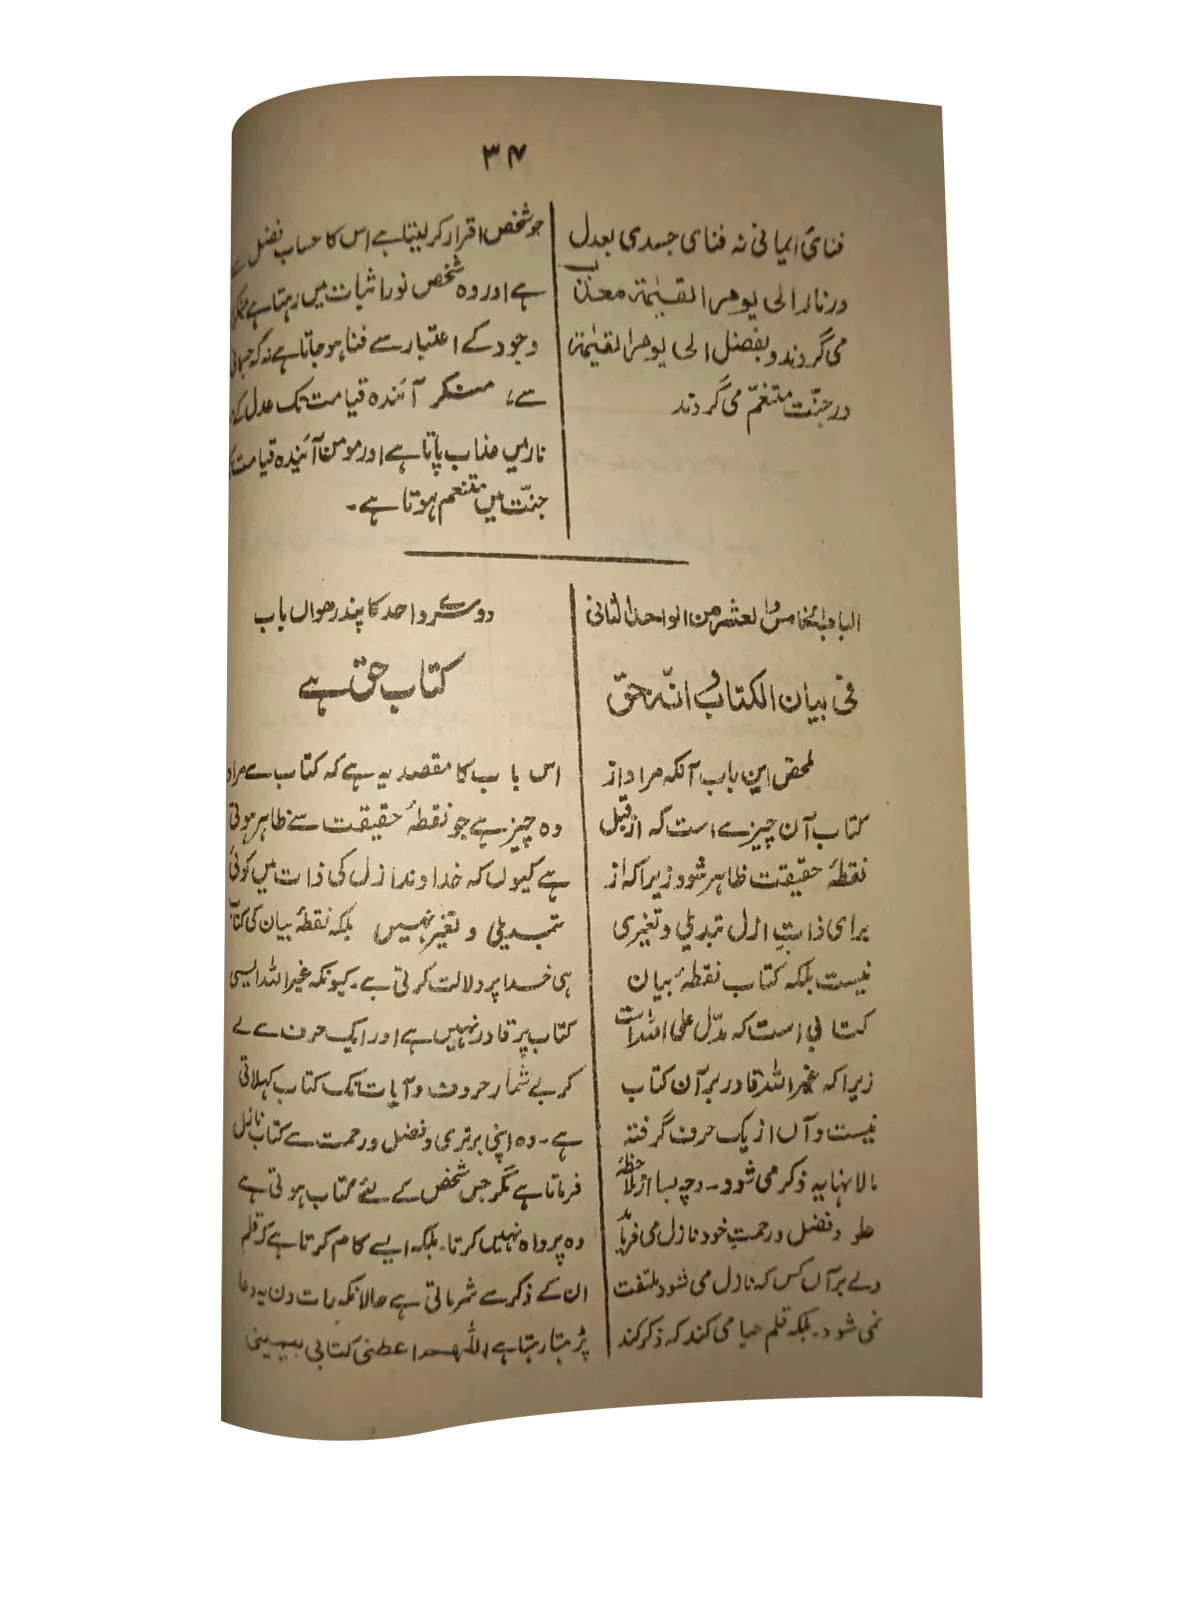 ۳۴
فنائ ایمانی نہ فنای جسدی بعدل
در نار الی یوم القیٰمۃ معذب
می گردند و بفضل الی یوم القیٰمۃ
در جنّت متنعّم می گردند
جو شخص اقرار کر لیتا ہے اس کا حساب فضل سے
ہے اور وہ شخص نور اثبات میں رہتا ہے
وجود کے اعتبار سے فنا ہو جاتا ہے نہ کہ جسمانی
سے، منکر آئندہ قیامت تک عدل کے
نار میں عذاب پاتا ہے اور مومن آئندہ قیامت
جنّت میں متنعم ہوتا ہے۔
الباب الخامس والعشر من الواحد الثانی
فی بیان الکتاب و انہ حق
ملخص این باب آنکہ مراد از
کتاب آن چیزے است کہ از قبل
نقطۂ حقیقت ظاہر شود زیرا کہ از
برای ذاتِ ازل تبدیلی و تغیری
نیست بلکہ کتاب نقطۂ بیان
کتابی است کہ مدّل علی اللہ است
زیرا کہ غیر اللہ قادر بر آن کتاب
نیست و آں از یک حرف گرفتہ
بالانہایہ ذکر می شود۔ وچہ بسا از ملاحظۂ
علو و فضل و رحمتِ خود نازل می فرماید
ولے بر آں کس کہ نازل می شود ملتفت
نمی شود۔ بلکہ قلم حیا می کند کہ ذکر کند
دوسرے واحد کا پندرھواں باب
کتاب حق ہے
اس باب کا مقصد یہ ہے کہ کتاب سے مراد
وہ چیز ہے جو نقطۂ حقیقت سے ظاہر ہوتی
ہے کیوں کہ خداوند ازل کی ذات میں کوئی
تبدیلی و تغیر نہیں بلکہ نقطۂ بیان کی کتاب
ہی خدا پر دلالت کرتی ہے۔ کیونکہ غیر اللہ ایسی
کتاب پر قادر نہیں ہے اور ایک حرف سے لے
کر بے شمار حروف و آیات تک کتاب کہلاتی
ہے۔ وہ اپنی برتری و فضل و رحمت سے کتاب نازل
فرماتا ہے مگر جس شخص کے لئے کتاب ہوتی ہے
وہ پرواہ نہیں کرتا۔ بلکہ ایسے کام کرتا ہے کہ قلم
ان کے ذکر سے شرماتی ہے حالانکہ رات دن یہ دعا
پڑھتا رہتا ہے اللّٰھم اعطنی کتابی بیمینی